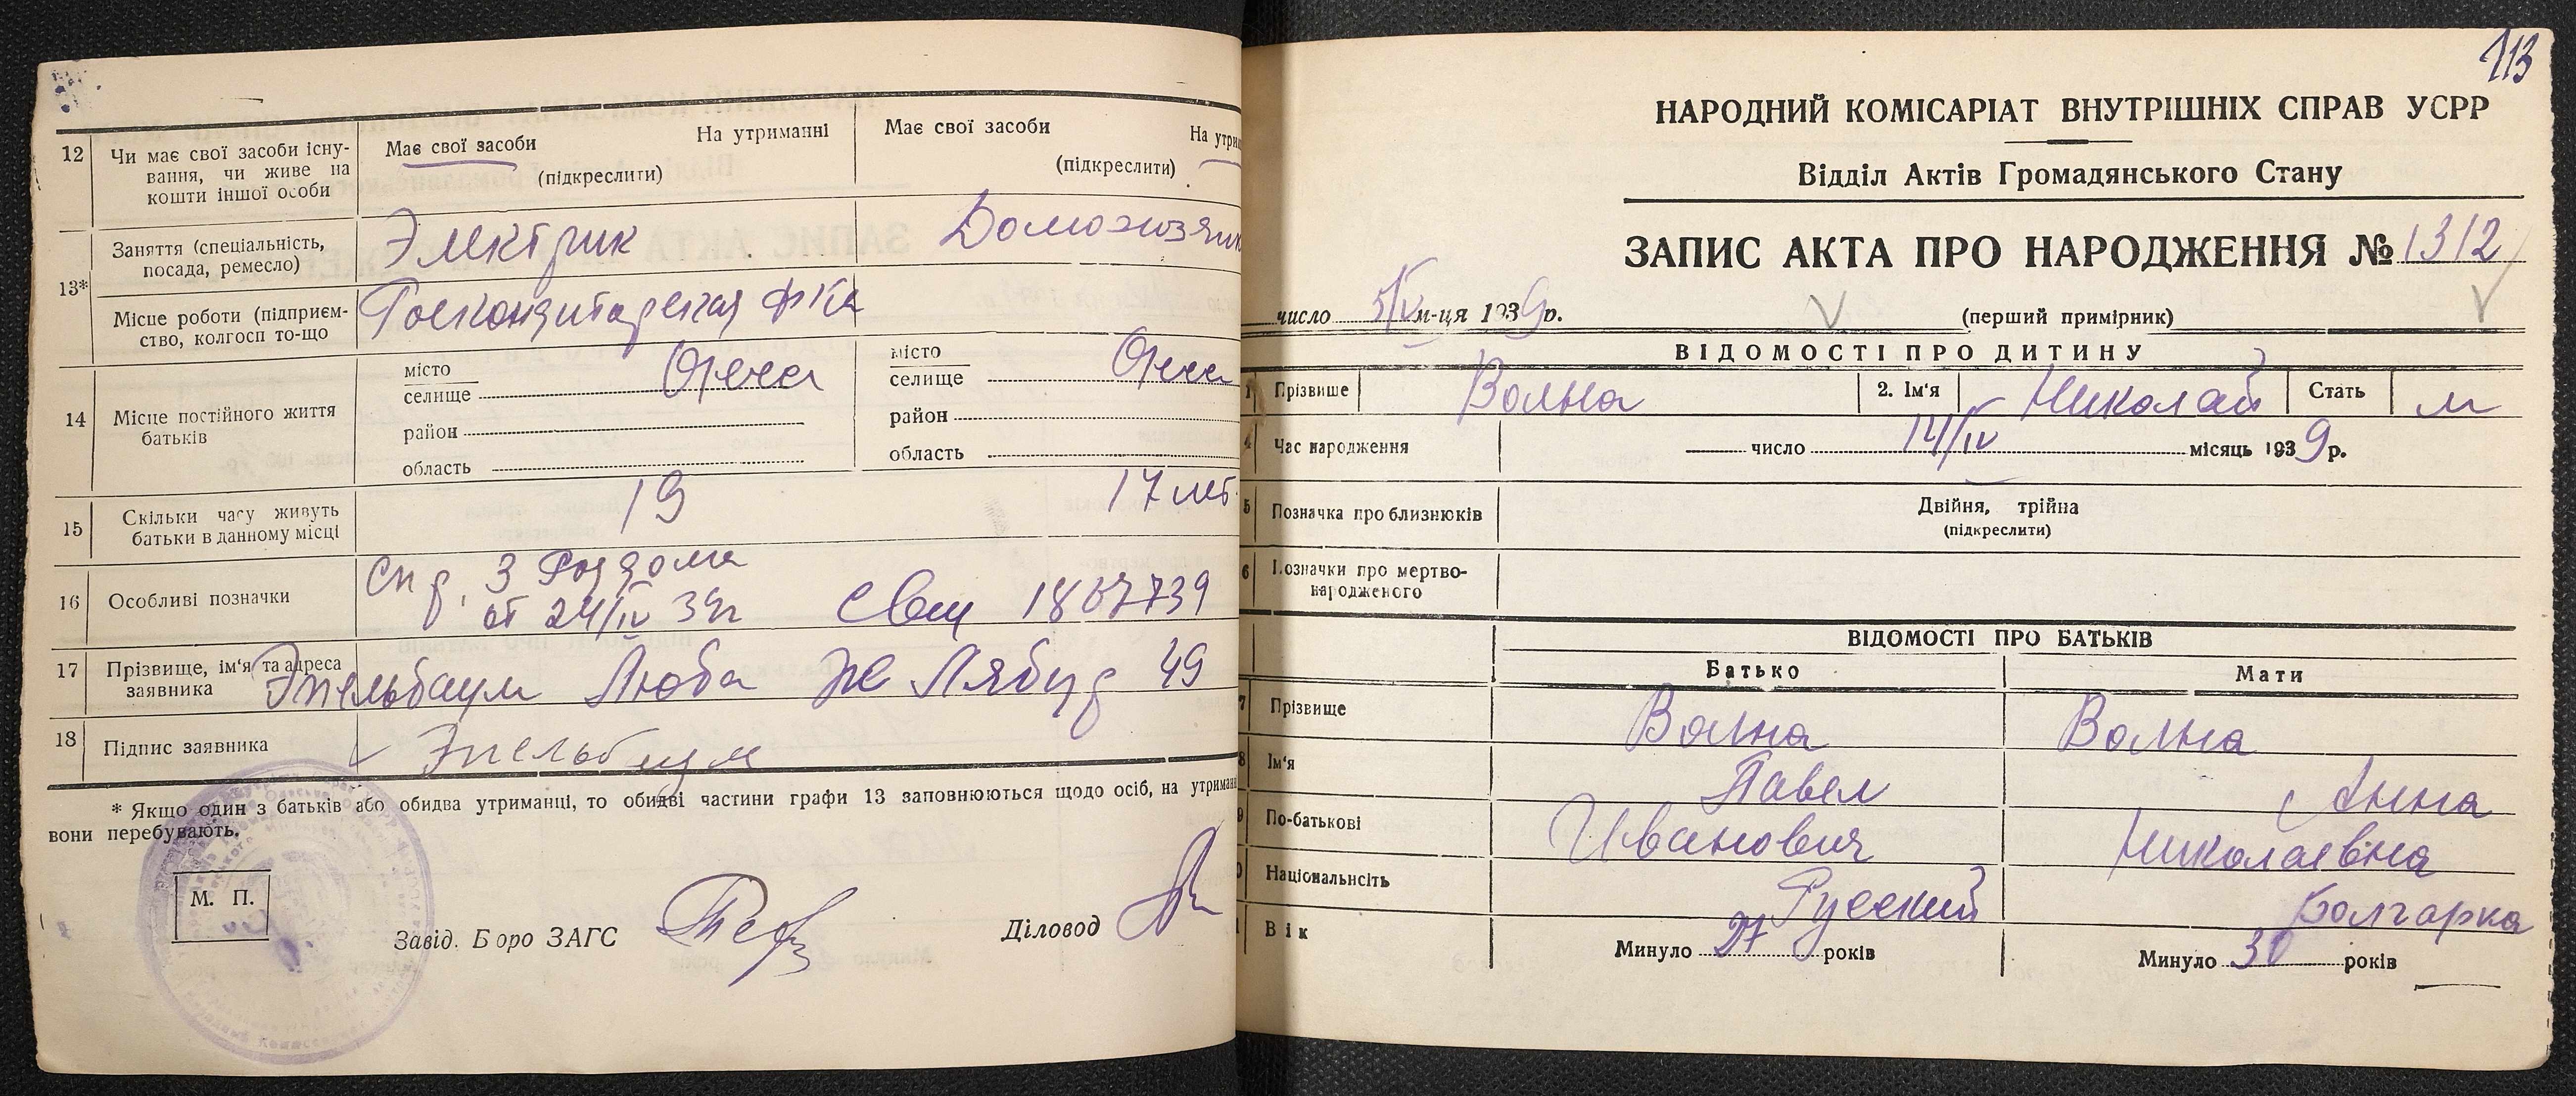 12 Чи має свої засоби існу-
вання, чи живе на
кошти іншої особи
Має свої засоби На утриманні
(підкреслити)
Має свої засоби На утрим
(підкреслити)
13*
Заняття (спеціальність,
посада, ремесло)
Электрик
Домохозяйк
Місце роботи (підприєм-
ство, колгосп то-що
14 Місце постійного життя
батьків
місто
селище Одесса
район
область
місто
селище Одесса
район
область
15 Скільки часу живуть
батьки в данному місці
19
17 лет
16 Особливі позначки
Спр. 3 Роддома
от 24/IV 39г
17 Прізвище, ім'я та адреса
заявника
Эпельбаум Люба 49
18 Підпис заявника
Эпельбаум
* Якщо один з батьків або обидва утриманці, то обидві частини графи 13 заповнюються щодо осіб, на утриман
вони перебувають.
М. П.
Завід. Бюро ЗАГС
Діловод
113
НАРОДНИЙ КОМІСАРІАТ ВНУТРІШНІХ СПРАВ УСРР
Відділ Актів Громадянського Стану
ЗАПИС АКТА ПРО НАРОДЖЕННЯ № 1312
число 5/V м-ця 1939 р.
(перший примірник)
ВІДОМОСТІ ПРО ДИТИНУ
1 Прізвище Волна 2. Ім'я Николай Стать м
4 Час народження число 14/IV місяць 1939 р.
5 Позначка про близнюків
Двійня, трійна
(підкреслити)
6 Позначки про мертво-
народженого
ВІДОМОСТІ ПРО БАТЬКІВ
Батько Мати
7 Прізвище Волна Волна
8 Ім'я Павел Анна
9 По-батькові Иванович Николаевна
Національність Русский Болгарка
Вік
Минуло 27 років
Минуло 30 років